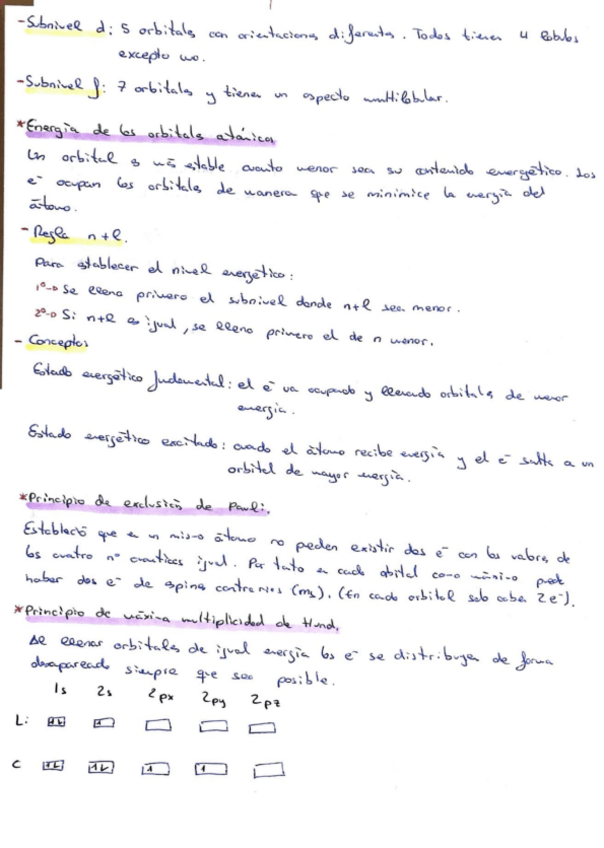 - Subnivel d: 5 orbitales con orientaciones diferentes. Todos tienen 4 lóbulos
excepto uno.
- Subnivel f: 7 orbitales y tienen un aspecto multilobular.
* Energía de los orbitales atómicos
Un orbital es más estable cuanto menor sea su contenido energético. Los
e⁻ ocupan los orbitales de manera que se minimice la energía del
átomo.
- Regla n+l.
Para establecer el nivel energético:
1º→ Se llena primero el subnivel donde n+l sea menor.
2º→ Si n+l es igual, se llena primero el de n menor.
- Conceptos
Estado energético fundamental: el e⁻ va ocupando y llenando orbitales de menor
energía.
Estado energético excitado: cuando el átomo recibe energía y el e⁻ salta a un
orbital de mayor energía.
* Principio de exclusión de Pauli.
Estableció que en un mismo átomo no pueden existir dos e⁻ con los valores de
los cuatro nº cuánticos igual. Por tanto en cada orbital como máximo puede
haber dos e⁻ de espines contrarios (ms). (En cada orbital solo caben 2e⁻).
* Principio de máxima multiplicidad de Hund.
Al llenar orbitales de igual energía los e⁻ se distribuyen de forma
desapareada siempre que sea posible.
1s 2s 2px 2py 2pz
Li
C